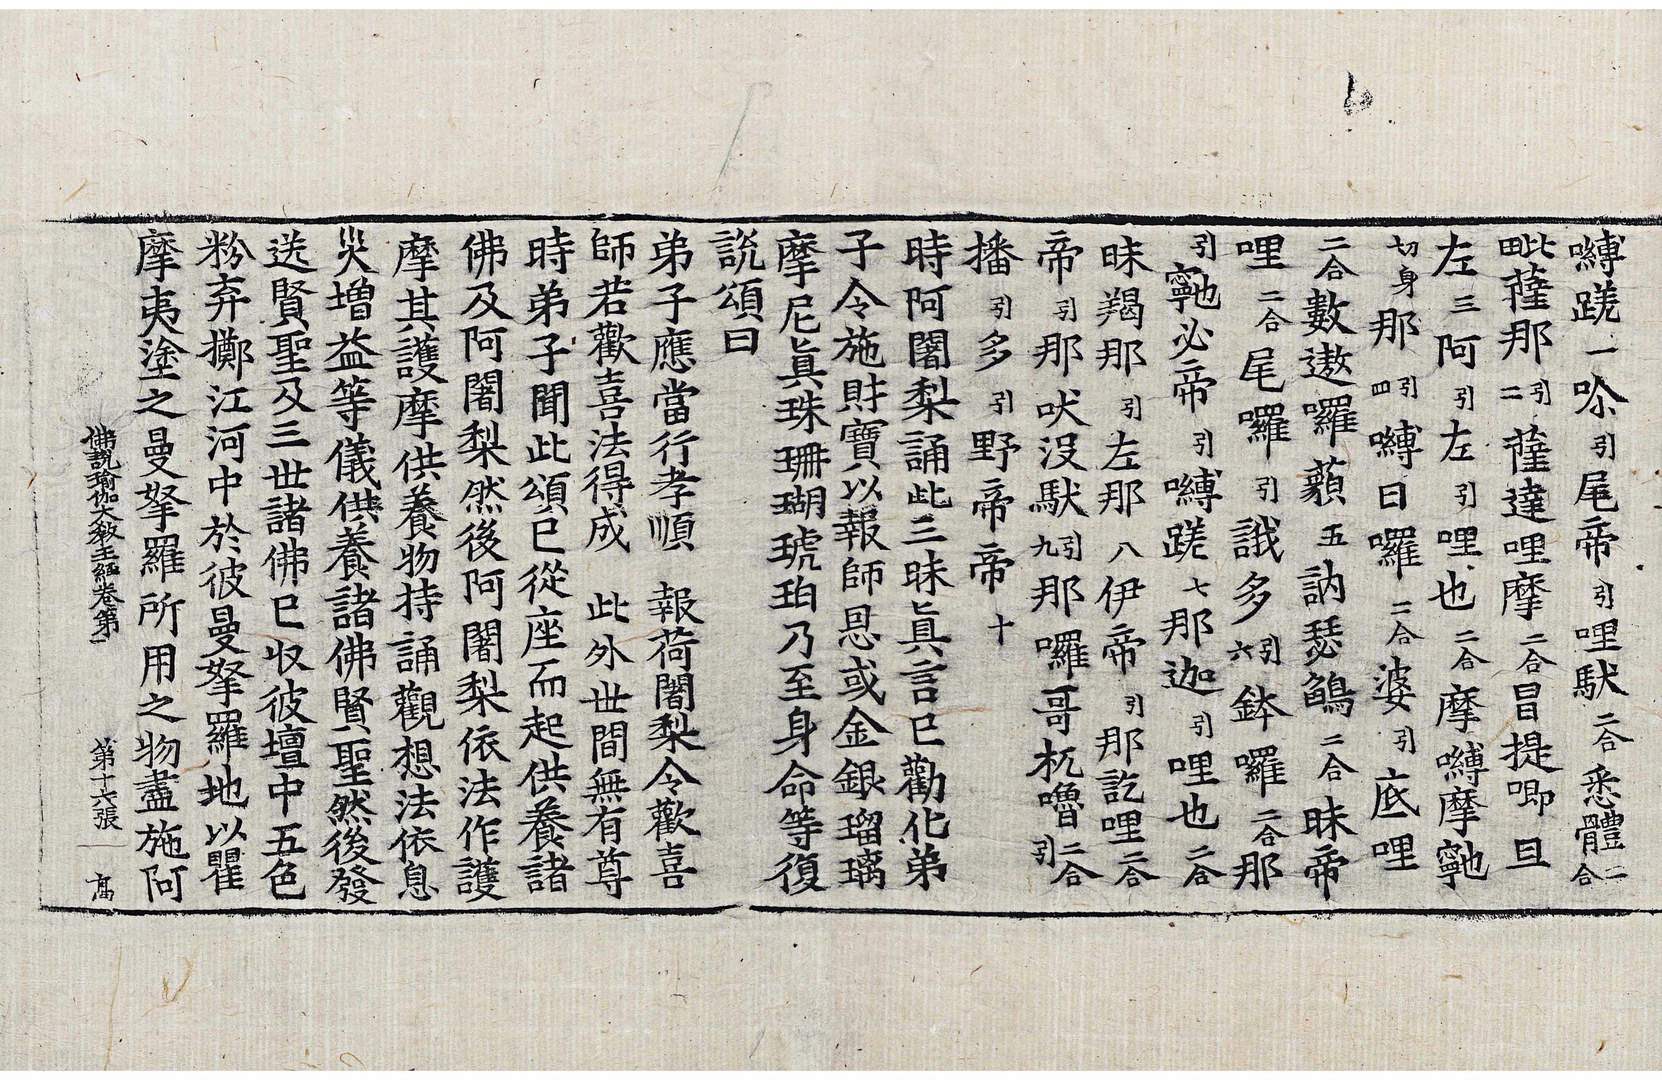 嚩蹉一吩引尾帝引哩馱二合悉體二合
毗薩那引二薩達哩摩二合冒提唧且
左三阿引左引哩也二合摩嚩摩𩕳
切身那引四嚩日囉二合婆引底哩
二合數遨囉蘔五訥瑟鵮二合昧帝
哩二合尾囉引誐多引六鉢囉二合那
引𩕳必帝引嚩蹉七那迦引哩也二合
昧羯那引左那八伊帝引那訖哩二合
帝引那吠沒馱引九那囉哥杌嚕二合引
播引多引野帝帝十
時阿闍梨誦此三昧眞言已勸化弟
子令施財寶以報師恩或金銀瑠璃
摩尼眞珠珊瑚琥珀乃至身命等復
說頌曰
弟子應當行孝順　報荷闍梨令歡喜
師若歡喜法得成　此外世間無有尊
時弟子聞此頌已從座而起供養諸
佛及阿闍梨然後阿闍梨依法作護
摩其護摩供養物持誦觀想法依息
災增益等儀供養諸佛賢聖然後發
送賢聖及三世諸佛已收彼壇中五色
粉弃擲江河中於彼曼拏羅地以瞿
摩夷塗之曼拏羅所用之物盡施阿
佛說瑜伽大敎王經卷第一　第十六張　高